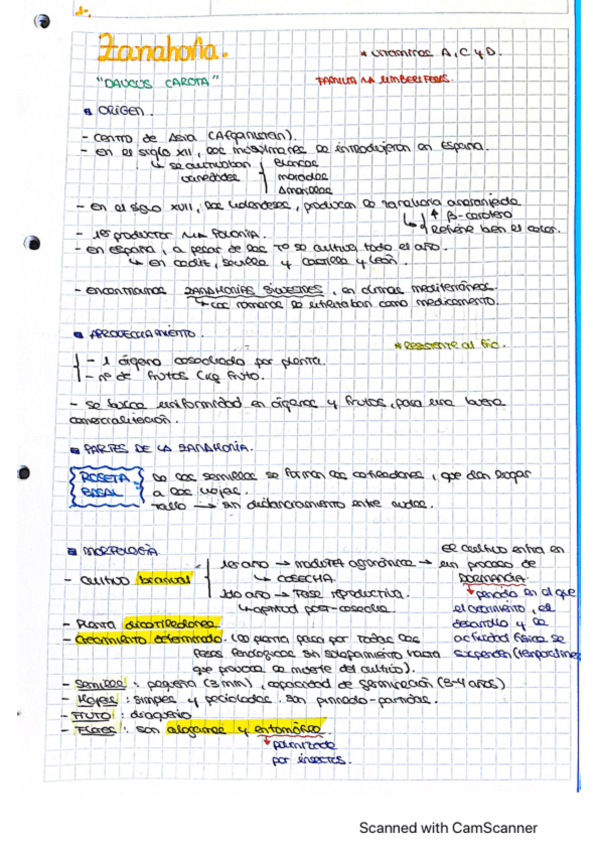 Zanahoria. * vitaminas A, C y D.
"DAUCUS CAROTA" FAMILIA UMBELIFERAS.
ORIGEN.
- centro de Asia (Afganistan).
- en el siglo XII, los musulmanes la introdujeron en España.
↳ se cultivaban variedades { Blancas
moradas
Amarillas
- en el siglo XVII, los holandeses, producen la zanahoria anaranjada
↳ ↑ β-caroteno
retiene bien el color.
- 1er productor Polonia.
- en españa, a pesar de las Tº se cultiva todo el año.
↳ en cadiz, sevilla y castilla y león.
- encontramos ZANAHORIAS SILVESTRES, en climas mediterráneos.
↳ los romanos la utilizaban como medicamento.
APROVECHAMIENTO. * Resistente al frío.
- 1 órgano cosechado por planta.
- nº de frutos (kg fruto.
- se busca uniformidad en órganos y frutos, para una buena
comercialización.
PARTES DE LA ZANAHORIA.
ROSETA BASAL
de las semillas se forman los cotiledones, que dan lugar
a las hojas.
Tallo → sin distanciamiento entre nudos.
MORFOLOGÍA
- cultivo bianual { 1er año → madurez agronómica →
↳ COSECHA.
2do año → Fase reproductiva.
↳ aptitud post-cosecha.
El cultivo entra en
un proceso de
DORMANCIA.
↳ periodo en el que
el crecimiento, el
desarrollo y la
actividad física se
suspenden (temporalmente
- Planta dicotiledonea
- Crecimiento determinado. (la planta pasa por todas las
fases fenologicas sin solapamiento hasta
que provoca la muerte del cultivo).
- Semillas: pequeña (3 mm), capacidad de germinación (3-4 años)
- Hojas: simples y pecioladas. son pinnado-partidas.
- Fruto: diaquenio
- Flores: son alogamas y entomófila.
↳ polinizada
por insectos.
Scanned with CamScanner